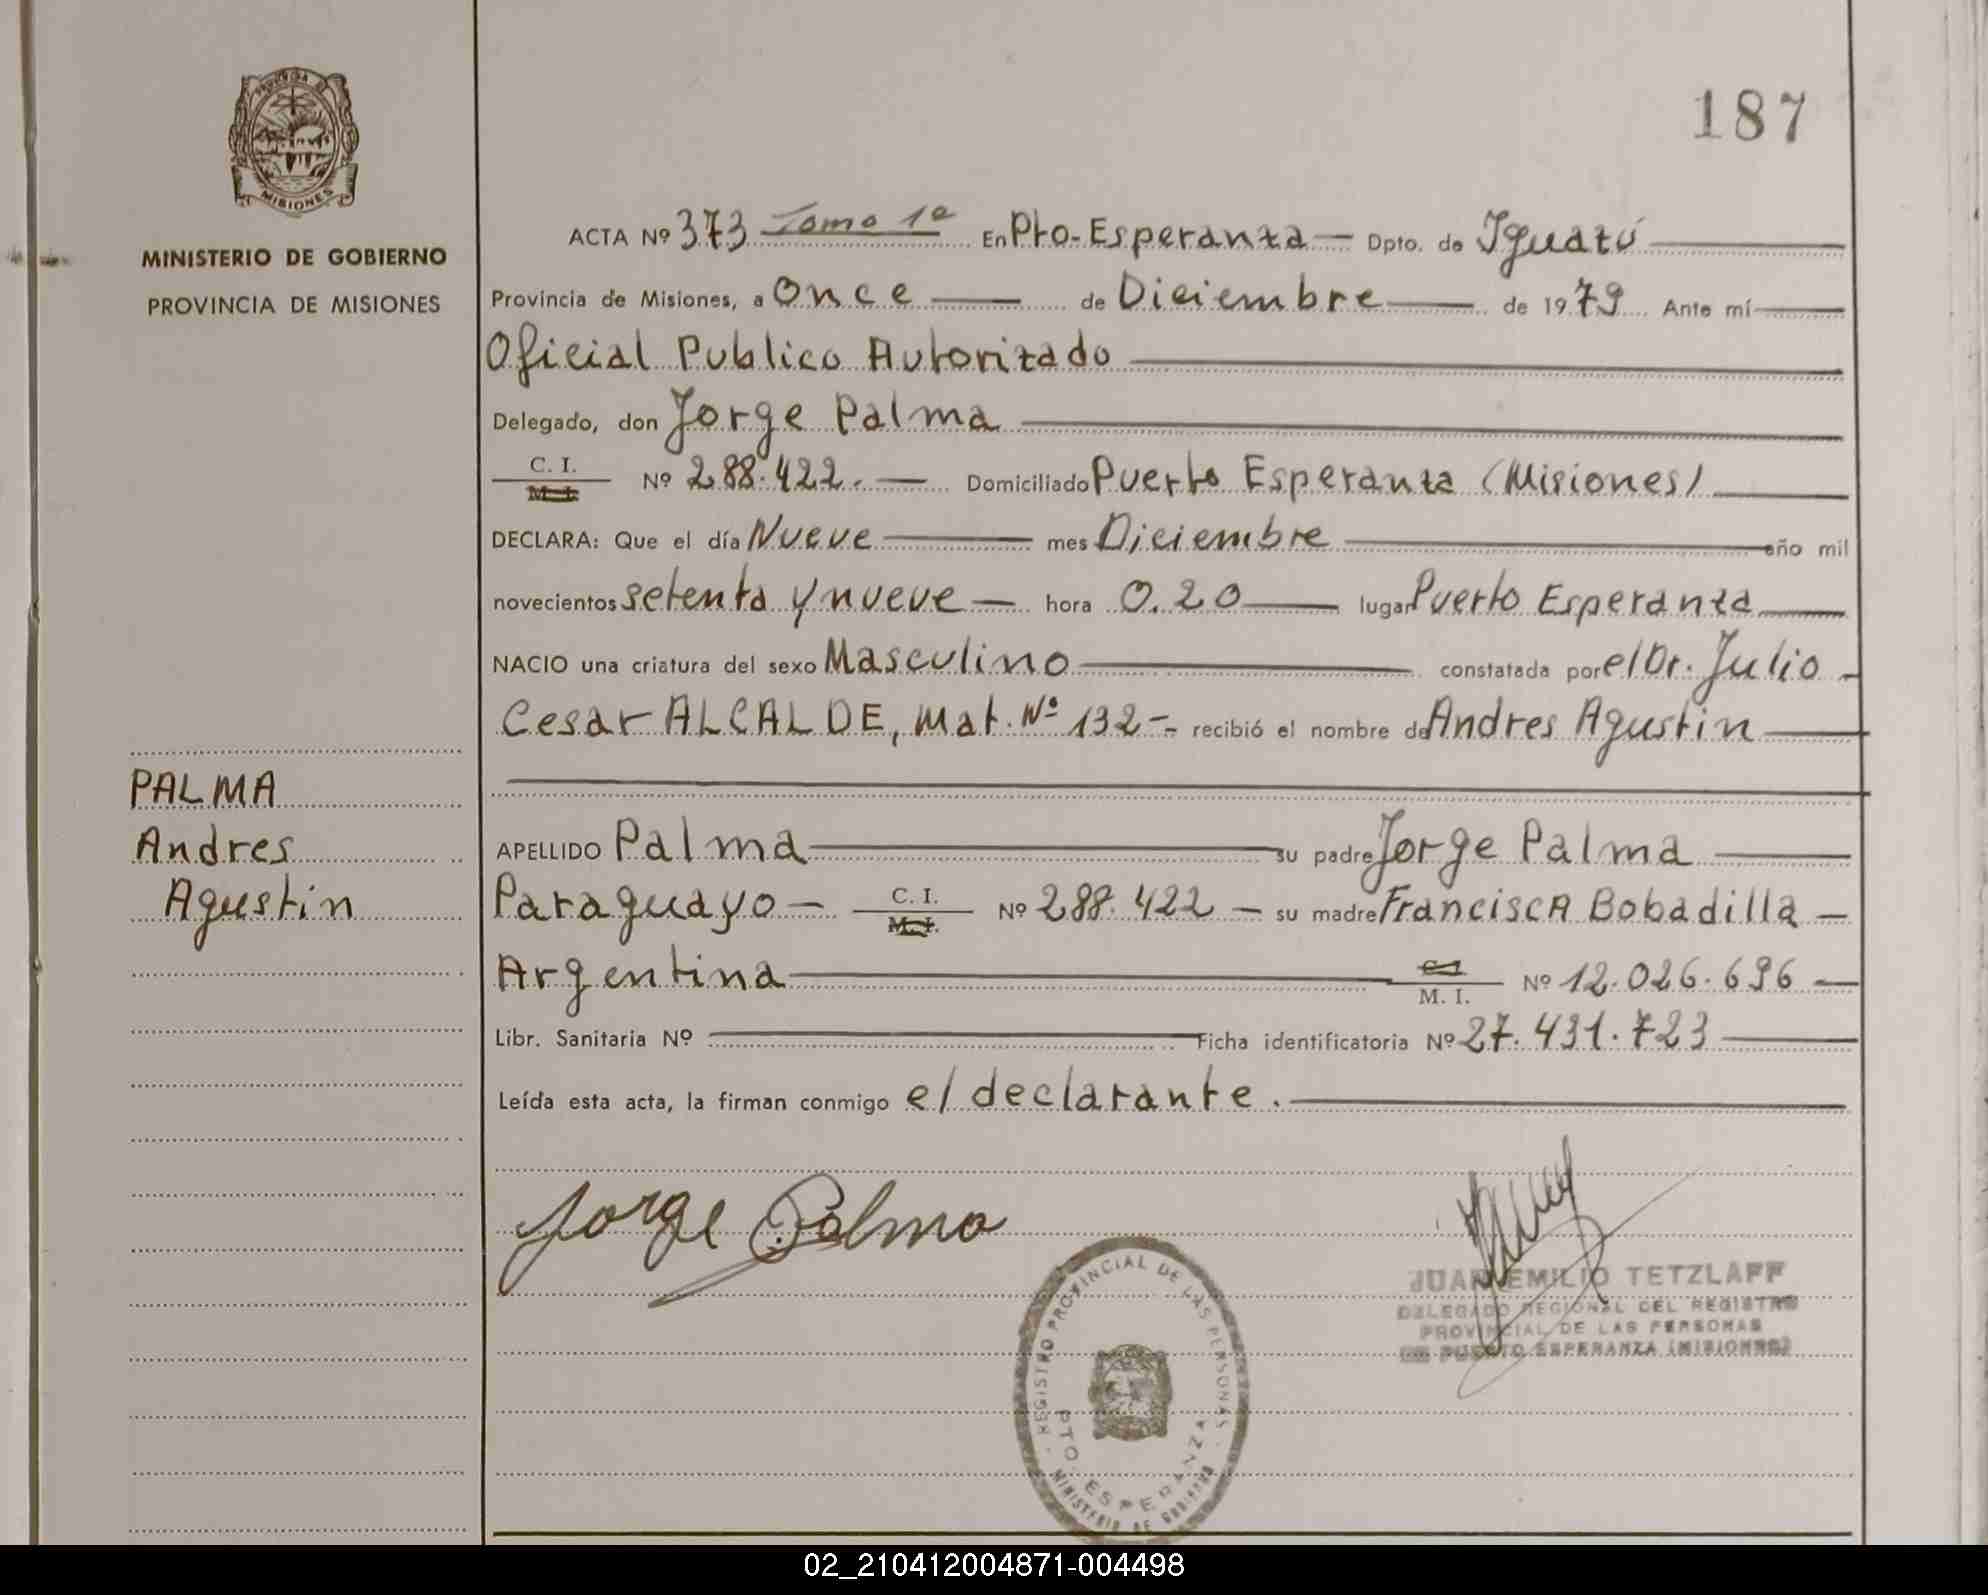 PROVINCIA DE
MISIONES
MINISTERIO DE GOBIERNO
PROVINCIA DE MISIONES
PALMA
Andres
Agustin
187
ACTA Nº 373 Tomo 1º En Pto-Esperanza — Dpto. de Iguazú
Provincia de Misiones, a Once — de Diciembre — de 1979 Ante mí
Oficial Publico Autorizado
Delegado, don Jorge Palma
C. I. M. I. Nº 288.422. — Domiciliado Puerto Esperanza (Misiones)
DECLARA: Que el día Nueve — mes Diciembre — año mil
novecientos setenta y nueve — hora 0.20 — lugar Puerto Esperanza
NACIO una criatura del sexo Masculino — constatada por el Dr. Julio
Cesar ALCALDE, Mat. Nº 132 - recibió el nombre de Andres Agustin
APELLIDO Palma — su padre Jorge Palma
Paraguayo — C. I. M. I. Nº 288.422 — su madre Francisca Bobadilla —
Argentina — C. I. M. I. Nº 12.026.696 —
Libr. Sanitaria Nº — Ficha identificatoria Nº 27.431.723
Leída esta acta, la firman conmigo el declarante.
Jorge Palma
JUAN EMILIO TETZLAFF
DELEGADO REGIONAL DEL REGISTRO
PROVINCIAL DE LAS PERSONAS
DE PUERTO ESPERANZA (MISIONES)
REGISTRO PROVINCIAL DE LAS PERSONAS
PTO. ESPERANZA
MINISTERIO DE GOBIERNO
02_210412004871-004498